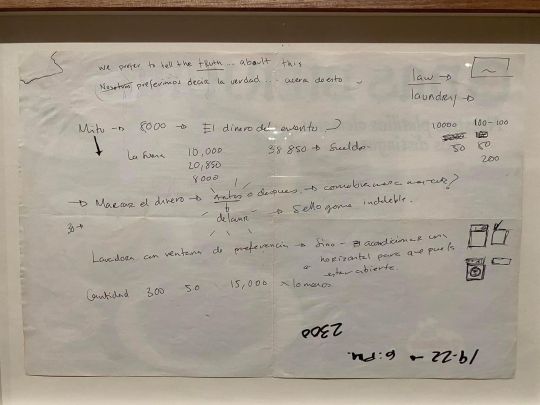 we prefer to tell the truth... about this
(Nosotros preferimos decir la verdad... acerca de esto
law →
laundry →
Mito → 8000 → El dinero del evento
10000 100-100
50 80
200
La Suma 10,000 38 850 → Sueldos
20,850
8000
→ Marcar el dinero → antes o despues. →
delavar → Sello goma indeleble.
Lavadora con ventana de preferencia → Sino - acondicionar una
horizontal para que pueda
estar abierta.
Cantidad 300 50 15,000 x lo menos
2300
19-22 → 6:PM.